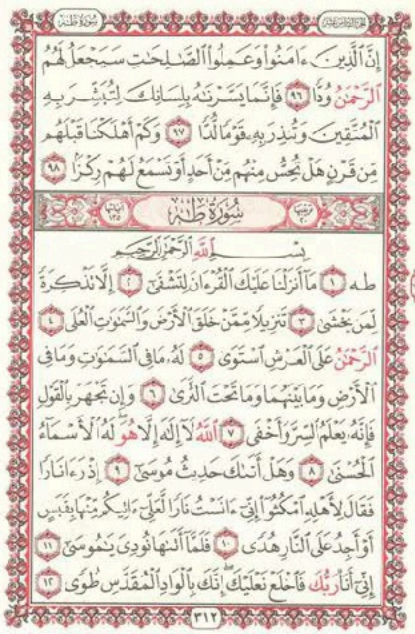 سُورَةُ طه
إِنَّ ٱلَّذِينَ ءَامَنُوا۟ وَعَمِلُوا۟ ٱلصَّـٰلِحَـٰتِ سَيَجْعَلُ لَهُمُ
ٱلرَّحْمَـٰنُ وُدًّا ٩٦ فَإِنَّمَا يَسَّرْنَـٰهُ بِلِسَانِكَ لِتُبَشِّرَ بِهِ
ٱلْمُتَّقِينَ وَتُنذِرَ بِهِۦ قَوْمًا لُّدًّا ٩٧ وَكَمْ أَهْلَكْنَا قَبْلَهُم
مِّن قَرْنٍ هَلْ تُحِسُّ مِنْهُم مِّنْ أَحَدٍ أَوْ تَسْمَعُ لَهُمْ رِكْزًۢا ٩٨
سُورَةُ طه
بِسْمِ ٱللَّهِ ٱلرَّحْمَـٰنِ ٱلرَّحِيمِ
طه ١ مَآ أَنزَلْنَا عَلَيْكَ ٱلْقُرْءَانَ لِتَشْقَىٰٓ ٢ إِلَّا تَذْكِرَةً
لِّمَن يَخْشَىٰ ٣ تَنزِيلًا مِّمَّنْ خَلَقَ ٱلْأَرْضَ وَٱلسَّمَـٰوَٰتِ ٱلْعُلَى ٤
ٱلرَّحْمَـٰنُ عَلَى ٱلْعَرْشِ ٱسْتَوَىٰ ٥ لَهُۥ مَا فِى ٱلسَّمَـٰوَٰتِ وَمَا فِى
ٱلْأَرْضِ وَمَا بَيْنَهُمَا وَمَا تَحْتَ ٱلثَّرَىٰ ٦ وَإِن تَجْهَرْ بِٱلْقَوْلِ
فَإِنَّهُۥ يَعْلَمُ ٱلسِّرَّ وَأَخْفَى ٧ ٱللَّهُ لَآ إِلَـٰهَ إِلَّا هُوَ لَهُ ٱلْأَسْمَآءُ
ٱلْحُسْنَىٰ ٨ وَهَلْ أَتَىٰكَ حَدِيثُ مُوسَىٰٓ ٩ إِذْ رَءَا نَارًا
فَقَالَ لِأَهْلِهِ ٱمْكُثُوٓا۟ إِنِّىٓ ءَانَسْتُ نَارًا لَّعَلِّىٓ ءَاتِيكُم مِّنْهَا بِقَبَسٍ
أَوْ أَجِدُ عَلَى ٱلنَّارِ هُدًى ١٠ فَلَمَّآ أَتَىٰهَا نُودِىَ يَـٰمُوسَىٰٓ ١١
إِنِّىٓ أَنَا۠ رَبُّكَ فَٱخْلَعْ نَعْلَيْكَ إِنَّكَ بِٱلْوَادِ ٱلْمُقَدَّسِ طُوًى ١٢
٣١٢